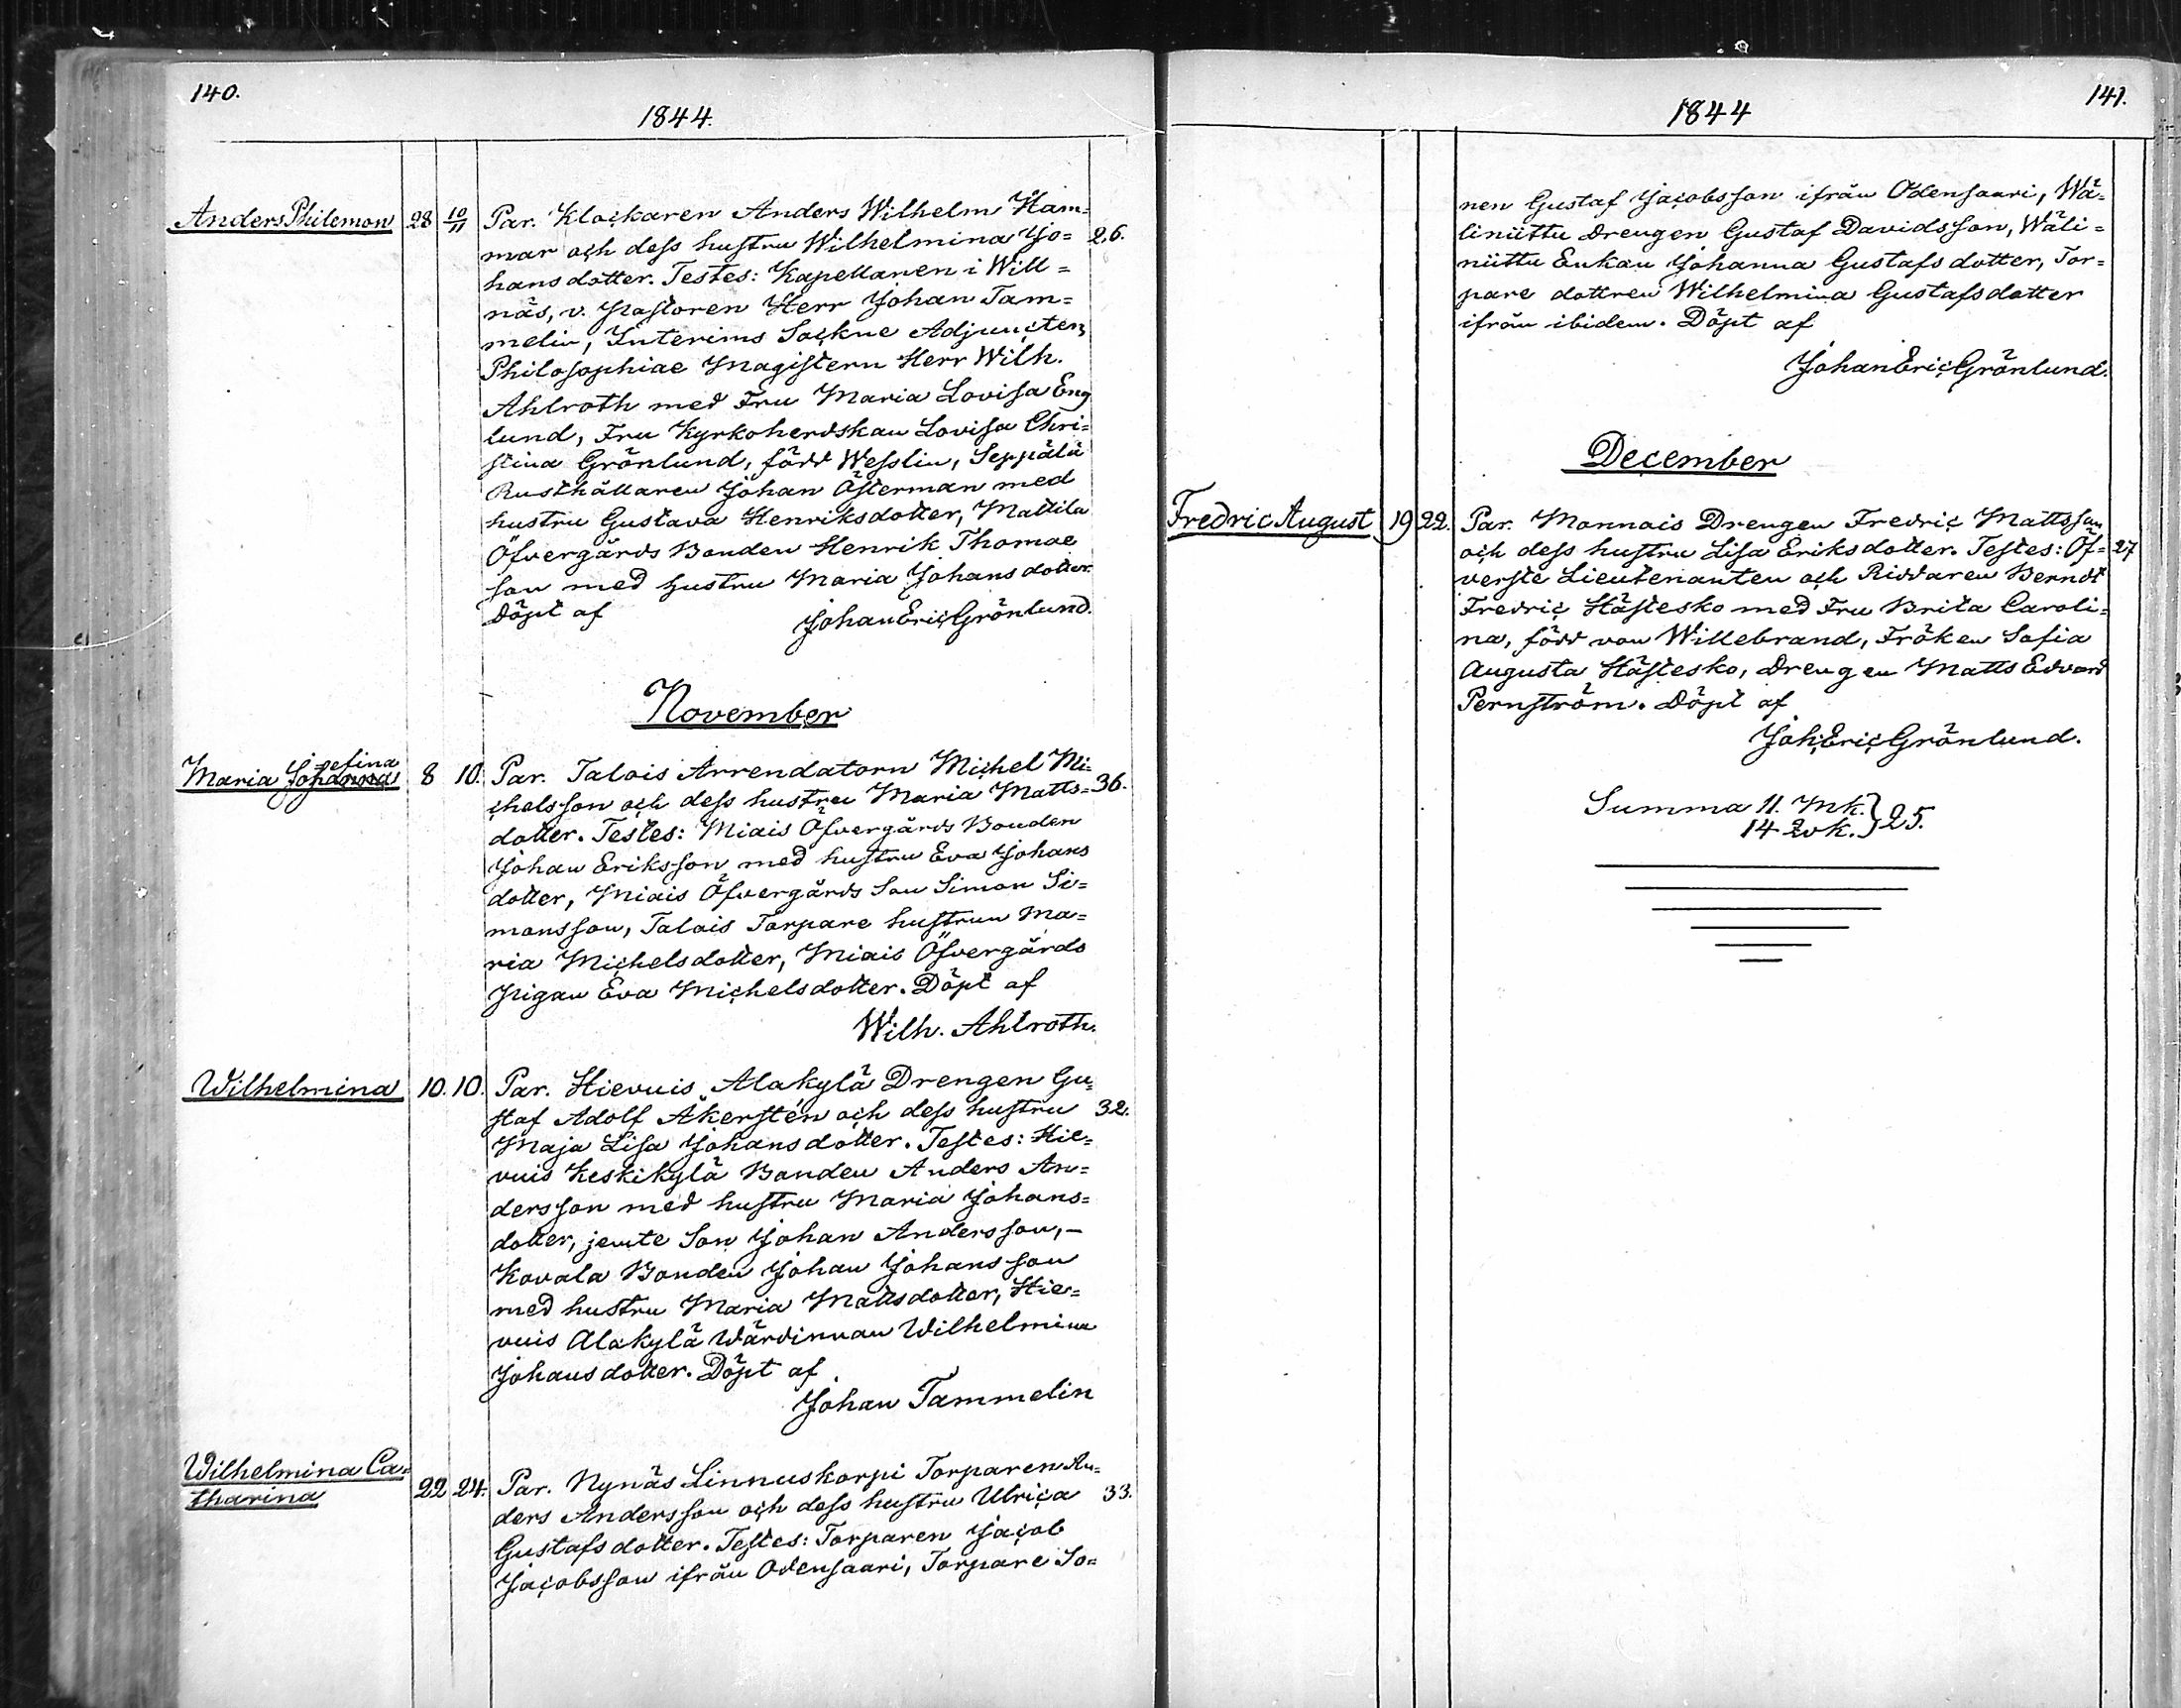 140.
1844.
Anders Philemon 28 10/11 Par. Klockaren Anders Wilhelm Ham=
mar och dess hustru Wilhelmina Jo= 26.
hansdotter. Testes: Kapellanen i Will=
näs, v. Pastoren Herr Johan Tam=
melin, Interims Sockne Adjuncten,
Philosophiae Magistern Herr Wilh.
Ahlroth med Fru Maria Lovisa Eng
lund, Fru Kyrkoherdskan Lovisa Chri=
stina Grönlund, född Wesslin, Seppälä
Rusthållaren Johan Österman med
hustru Gustava Henriksdotter, Mattila
Öfvergårds Bonden Henrik Thomae
son med hustru Maria Johansdotter.
Döpt af Johan Eric Grönlund.
November
sefina
Maria Johanna 8 10. Par. Talois Arrendatorn Michel Mi=
chelsson och dess hustru Maria Matts= 36.
dotter. Testes: Miais Öfvergårds Bonden
Johan Eriksson med hustru Eva Johans
dotter, Miais Öfvergårds Son Simon Si=
monsson, Talois Torpare hustrun Ma=
ria Michelsdotter, Miais Öfvergårds
Pigan Eva Michelsdotter. Döpt af
Wilh. Ahlroth.
Wilhelmina 10. 10. Par. Hievuis Alakylä Drengen Gu=
staf Adolf Åkerstén och dess hustru 32.
Maja Lisa Johansdotter. Testes: Hie=
vuis Keskikylä Bonden Anders An=
dersson med hustru Maria Johans=
dotter, jemte Son Johan Andersson, –
Kovala Bonden Johan Johansson
med hustru Maria Mattsdotter, Hie=
vuis Alakylä Wärdinnan Wilhelmina
Johansdotter. Döpt af
Johan Tammelin
Wilhelmina Ca=
tharina 22 24. Par. Nynäs Linnuskorpi Torparen An=
ders Andersson och dess hustru Ulrica 33.
Gustafsdotter. Testes: Torparen Jacob
Jacobsson ifrån Odensaari, Torpare So=
141.
1844
nen Gustaf Jacobsson ifrån Odensaari, Wä=
liniittu Drengen Gustaf Davidsson, Wäli=
niittu Enkan Johanna Gustafsdotter, Tor=
pare dottren Wilhelmina Gustafsdotter
ifrån ibidem. Döpt af
Johan Eric Grönlund.
December
Fredric August 19 22. Par. Monnais Drengen Fredric Mattsson
och dess hustru Lisa Eriksdotter. Testes: Öf= 27
verste Lieutenanten och Riddaren Berndt
Fredric Hästesko med Fru Brita Caroli=
na, född von Willebrand, Fröken Sofia
Augusta Hästesko, Drengen Matts Edvard
Pernström. Döpt af
Joh. Eric Grönlund.
Summa 11. Mk. } 25.
14 Qvk.